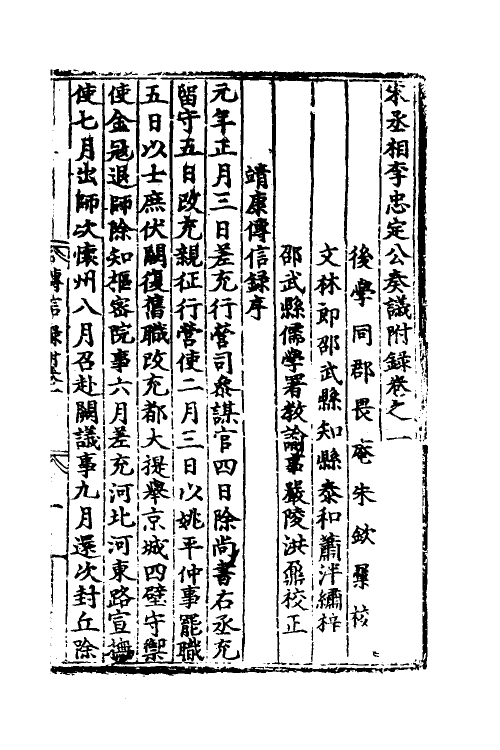 宋丞相李忠定公奏議附錄卷之一
後學同郡畏庵朱欽彙校
文林郎邵武縣知縣泰和蕭泮繡梓
邵武縣儒學署教諭事嚴陵洪鼐校正
靖康傳信錄序
元年正月三日差充行營司叅謀官四日除尚書右丞充
留守五日改充親征行營使二月三日以姚平仲事罷職
五日以士庶伏闕復舊職改充都大提舉京城四壁守禦
使金寇退師除知樞密院事六月差充河北河東路宣撫
使七月出師次懷州八月召赴闕議事九月還次封丘除
傳信錄